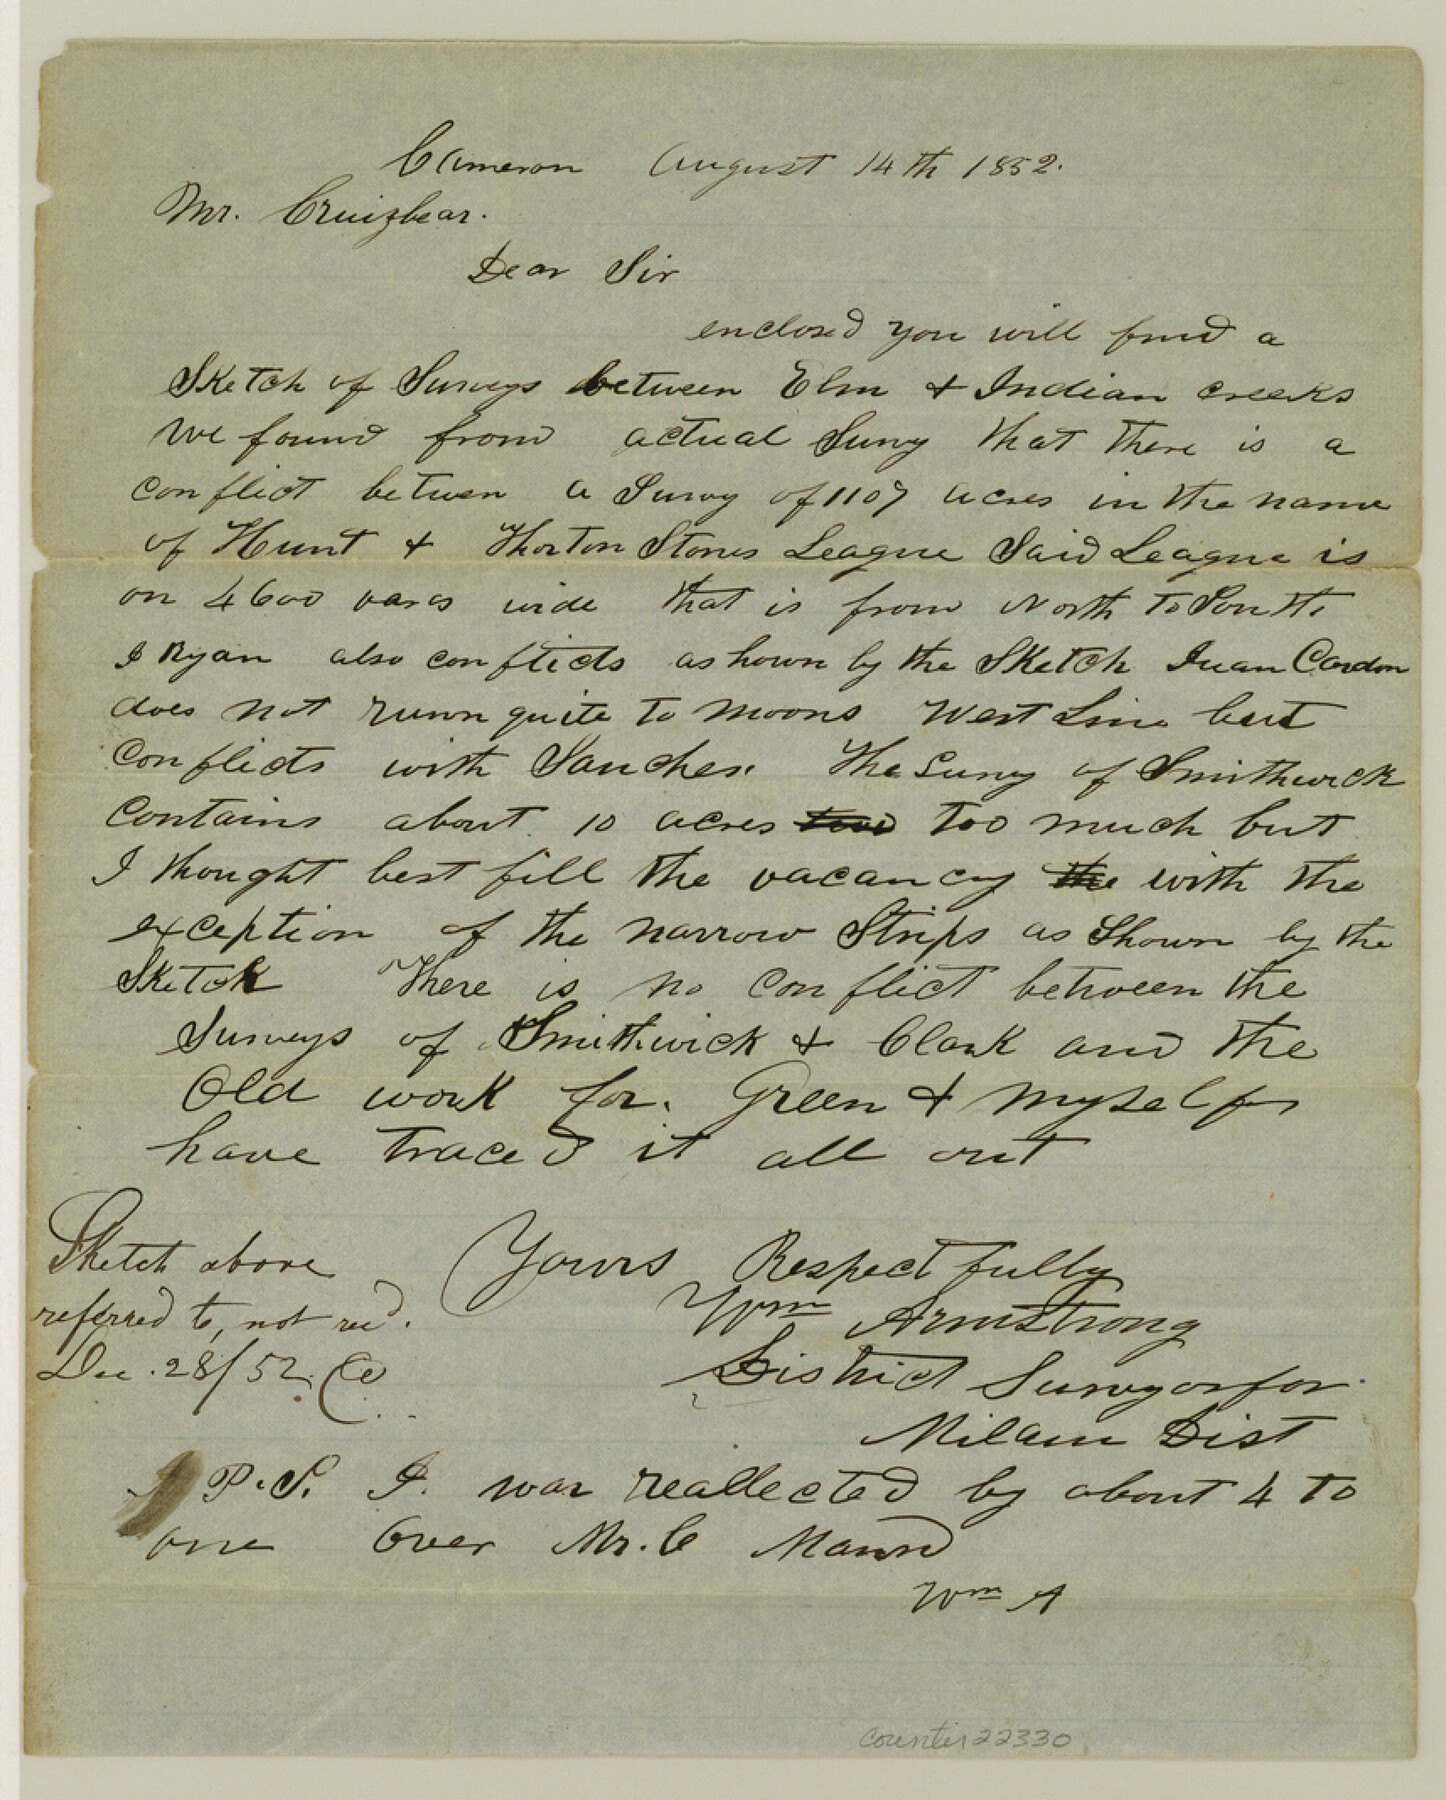 Cameron August 14th 1852.
Mr. Cruizbear.
Dear Sir
enclosed you will find a
Sketch of Surveys between Elm & Indian creeks
We found from actual Survy that there is a
conflict between a Survy of 1107 acres in the name
of Hunt & Thorton Stones League Said League is
on 4600 varas wide that is from North To South
I Ryan also conflicts as hown by the Sketch Juan Cordon
does not runn quite to Moons West Line but
Conflicts with Sanches. The Survy of Smithwick
Contains about 10 acres too much but
I thought best fill the vacancy with the
exception of the narrow Strips as Shown by the
Sketch There is no conflict between the
Surveys of Smithwick & Clark and the
Old work for. Green & myself
have traced it all out
Yours Respectfully
Wm Armstrong
District Surveyor for
Milam Dist
Sketch above
referred to, not recd.
Dec. 28/52.
P.S. I. was reallected by about 4 to
one over Mr. C Mann
Wm A
Counter 22330